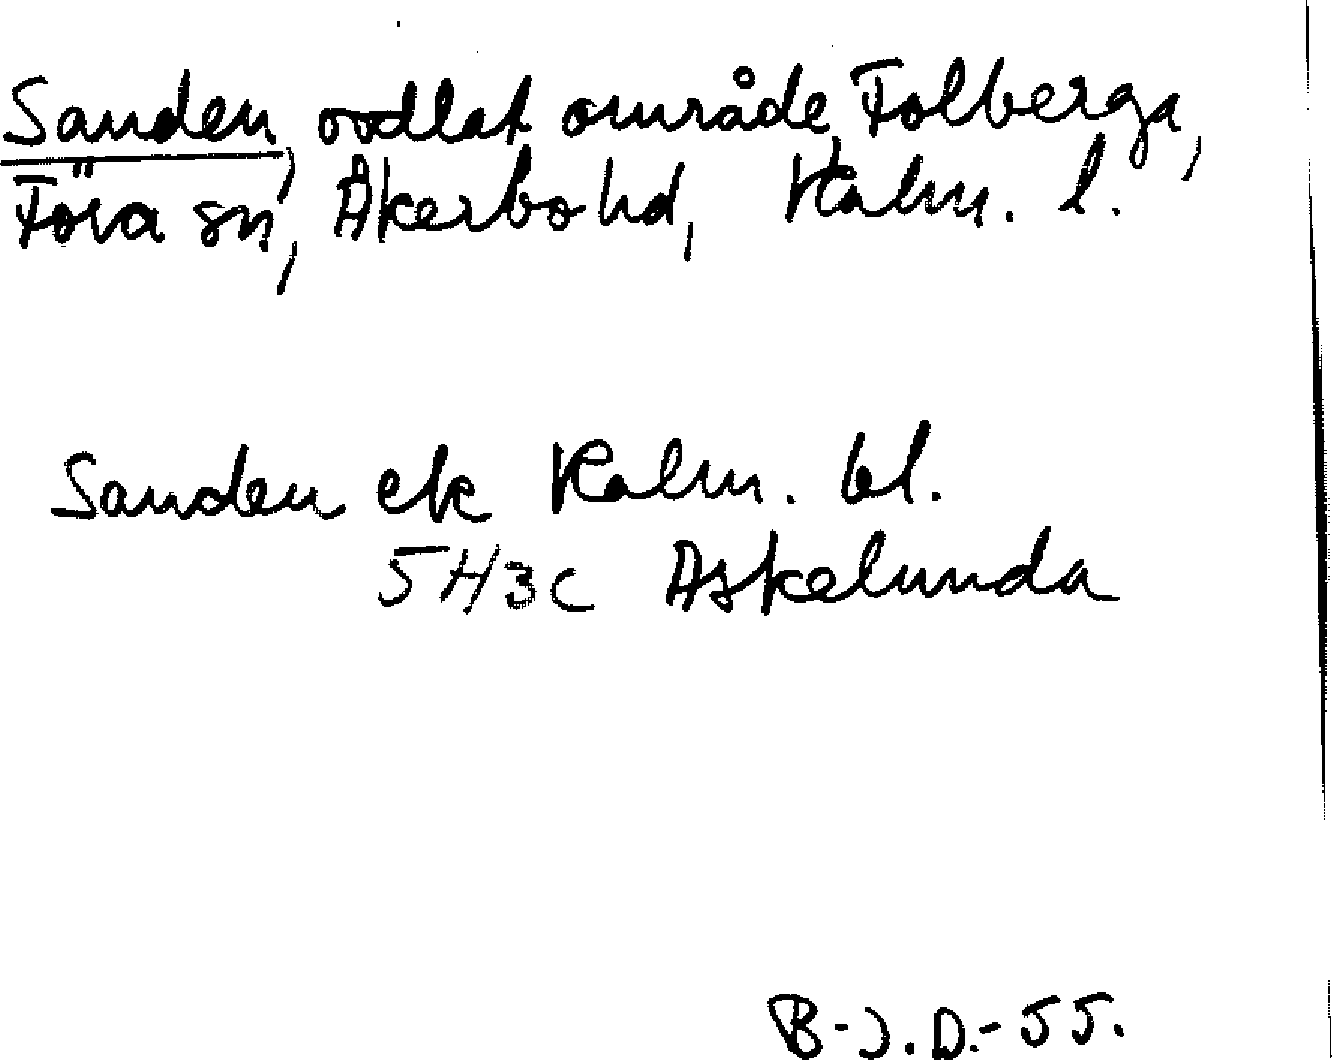 Sanden, oodlat område, Folberga,
Föra sn, Åkerbo hd, Kalm. l.
Sanden ek Kalm. bl.
5H3c Askelunda
B-J.D.-55.